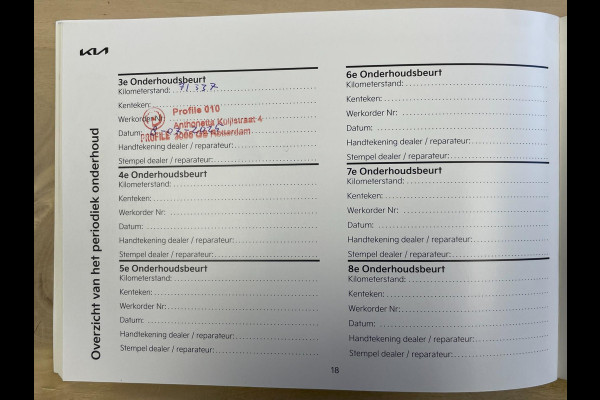 KIA
Overzicht van het periodiek onderhoud
3e Onderhoudsbeurt
Kilometerstand: 71.337
Kenteken:
Profile 010
Werkorder Nr:
Antharietta Kuijlstraat 4
Datum:
PROFILE 3066 GS Rotterdam
Handtekening dealer / reparateur:
Stempel dealer / reparateur:
4e Onderhoudsbeurt
Kilometerstand:
Kenteken:
Werkorder Nr:
Datum:
Handtekening dealer / reparateur:
Stempel dealer / reparateur:
5e Onderhoudsbeurt
Kilometerstand:
Kenteken:
Werkorder Nr:
Datum:
Handtekening dealer / reparateur:
Stempel dealer / reparateur:
6e Onderhoudsbeurt
Kilometerstand:
Kenteken:
Werkorder Nr:
Datum:
Handtekening dealer / reparateur:
Stempel dealer / reparateur:
7e Onderhoudsbeurt
Kilometerstand:
Kenteken:
Werkorder Nr:
Datum:
Handtekening dealer / reparateur:
Stempel dealer / reparateur:
8e Onderhoudsbeurt
Kilometerstand:
Kenteken:
Werkorder Nr:
Datum:
Handtekening dealer / reparateur:
Stempel dealer / reparateur:
18